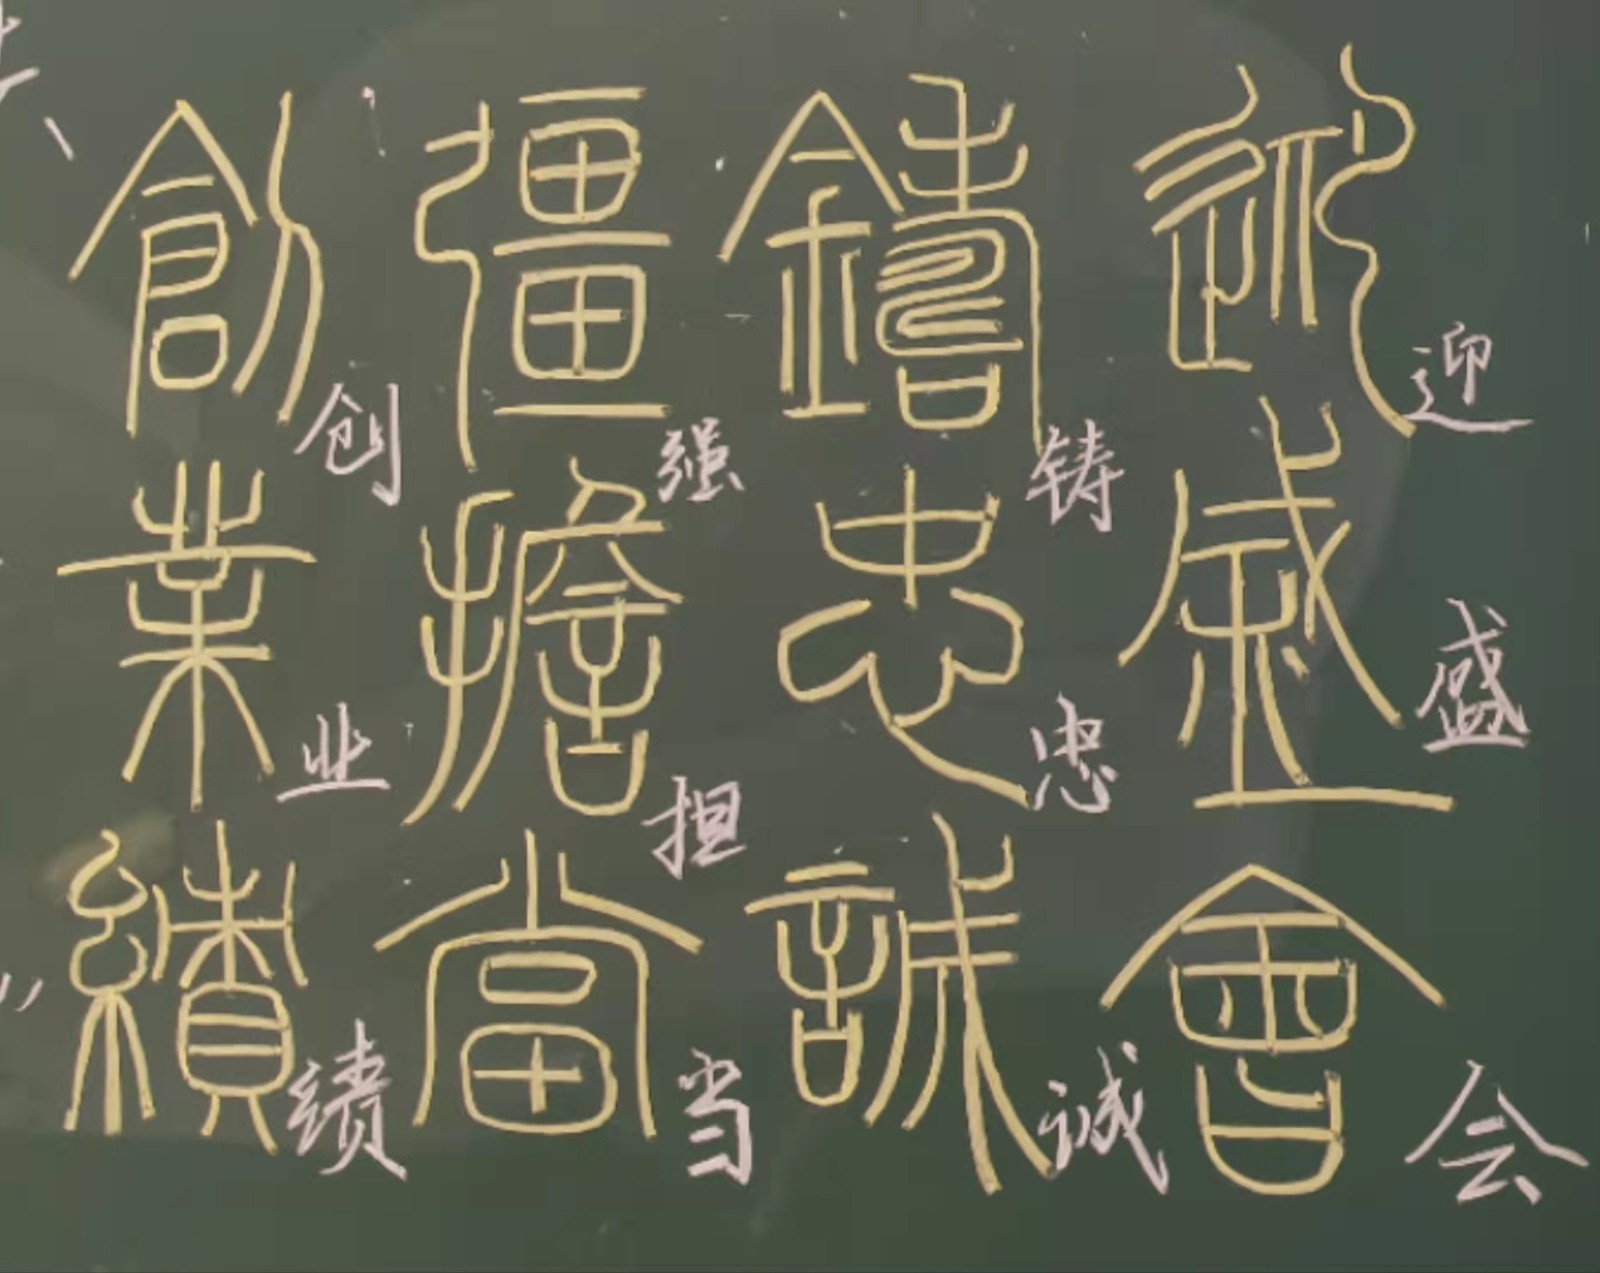 迎盛會
迎盛会
鑄忠誠
铸忠诚
彊擔當
强担当
創業績
创业绩